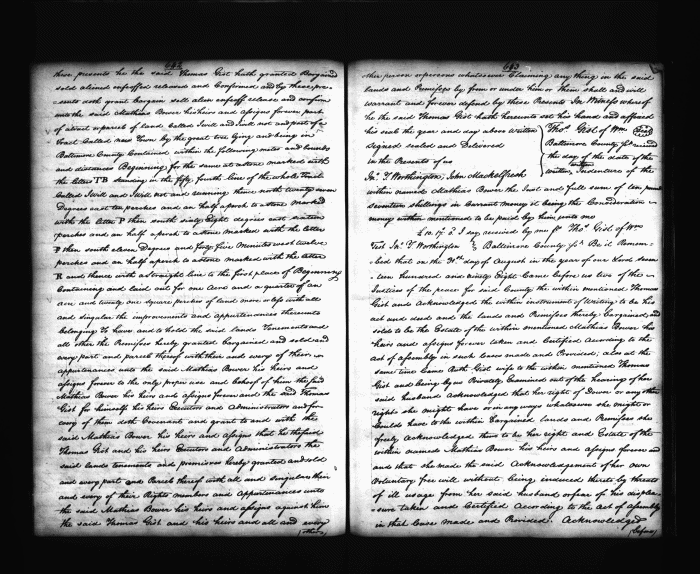 642
these presents he the said Thomas Gist hath granted Bargained
sold aliened enfeoffed released and Confirmed and by these pre-
sents doth grant Bargain sell alien enfeoff release and confirm
unto the said Mathias Bower his heirs and assigns forever part
of a tract or parcel of land Called I will and I will not and part of a
tract Called new Town by the great tree lying and being in
Baltimore County Contained within the following metes and bounds
and distances Beginning for the same at a stone marked with
the letter TB standing in the fifty fourth line of the whole tract
Called I will and I will not and running thence north twenty seven
Degrees east ten perches and an half a perch to a stone marked
with the letter P then south sixty Eight degrees east sixteen
perches and an half a perch to a stone marked with the letter
P then south eleven Degrees and forty five Minutes west twelve
perches and an half a perch to a stone marked with the letter
R and thence with a straight line to the first place of Beginning
Containing and laid out for one acre and a quarter of an
acre and twenty one square perches of land more or less with all
and singular the improvements and appurtenances thereunto
belonging To have and to hold the said lands Tenements and
all other the Premises hereby granted Bargained and sold and
every part and parcel thereof with their and every of their
appurtenances unto the said Mathias Bower his heirs and
assigns forever to the only proper use and behoof of him the said
Mathias Bower his heirs and assigns forever and the said Thomas
Gist for himself his heirs Executors and Administrators and for
every of them doth Covenant and grant to and with the
said Mathias Bower his heirs and assigns that he the said
Thomas Gist and his heirs Executors and Administrators the
said lands tenements and premises hereby granted and sold
and every part and Parcel thereof with all and singular their
and every of their Rights members and Appurtenances unto
the said Mathias Bower his heirs and assigns against him
the said Thomas Gist and his heirs and all and every
(other)
643
other person or persons whatsoever Claiming any thing in the said
lands and Premises by from or under him or them shall and will
warrant and forever defend by these Presents In Witness whereof
he the said Thomas Gist hath hereunto set his hand and affixed
his seal the year and day above written
Signed sealed and Delivered
in the Presents of us
Jno. T. Worthington, John Mackelfresh
Thos. Gist of Wm (Seal)
Baltimore County ss received
the day of the date of the
within written, Indenture of the
within named Mathias Bower the Just and full sum of ten pounds
seventeen shillings in Current money it being the Consideration
money within mentioned to be paid by him unto me
£10.17.0 I say received by me pr Thos. Gist of Wm
Test Jno. T. Worthington } Baltimore County ss Be it Remem-
bered that on the 31st day of August in the year of our Lord seven-
teen hundred and ninety Eight Came before us two of the
Justices of the peace for said County the within mentioned Thomas
Gist and Acknowledged the within instrument of Writing to be his
act and deed and the lands and Premises thereby Bargained and
sold to be the Estate of the within mentioned Mathias Bower his
heirs and assigns forever taken and Certified According to the
act of assembly in such Cases made and Provided; also at the
same time Came Ruth Gist wife to the within mentioned Thomas
Gist and being by us Privately Examined out of the hearing of her
said husband acknowledged that her right of Dower or any other
right she might have or in any ways whatsoever she might or
Could have to the within Bargained lands and Premises she
freely Acknowledged them to be her right and Estate of the
within named Mathias Bower his heirs and assigns forever
and that she made the said Acknowledgement of her own
Voluntary free will without being induced thereto by threats
of ill usage from her said husband or fear of his displea-
sure taken and Certified According to the Act of Assembly
in that Case made and Provided. Acknowledged
(before)